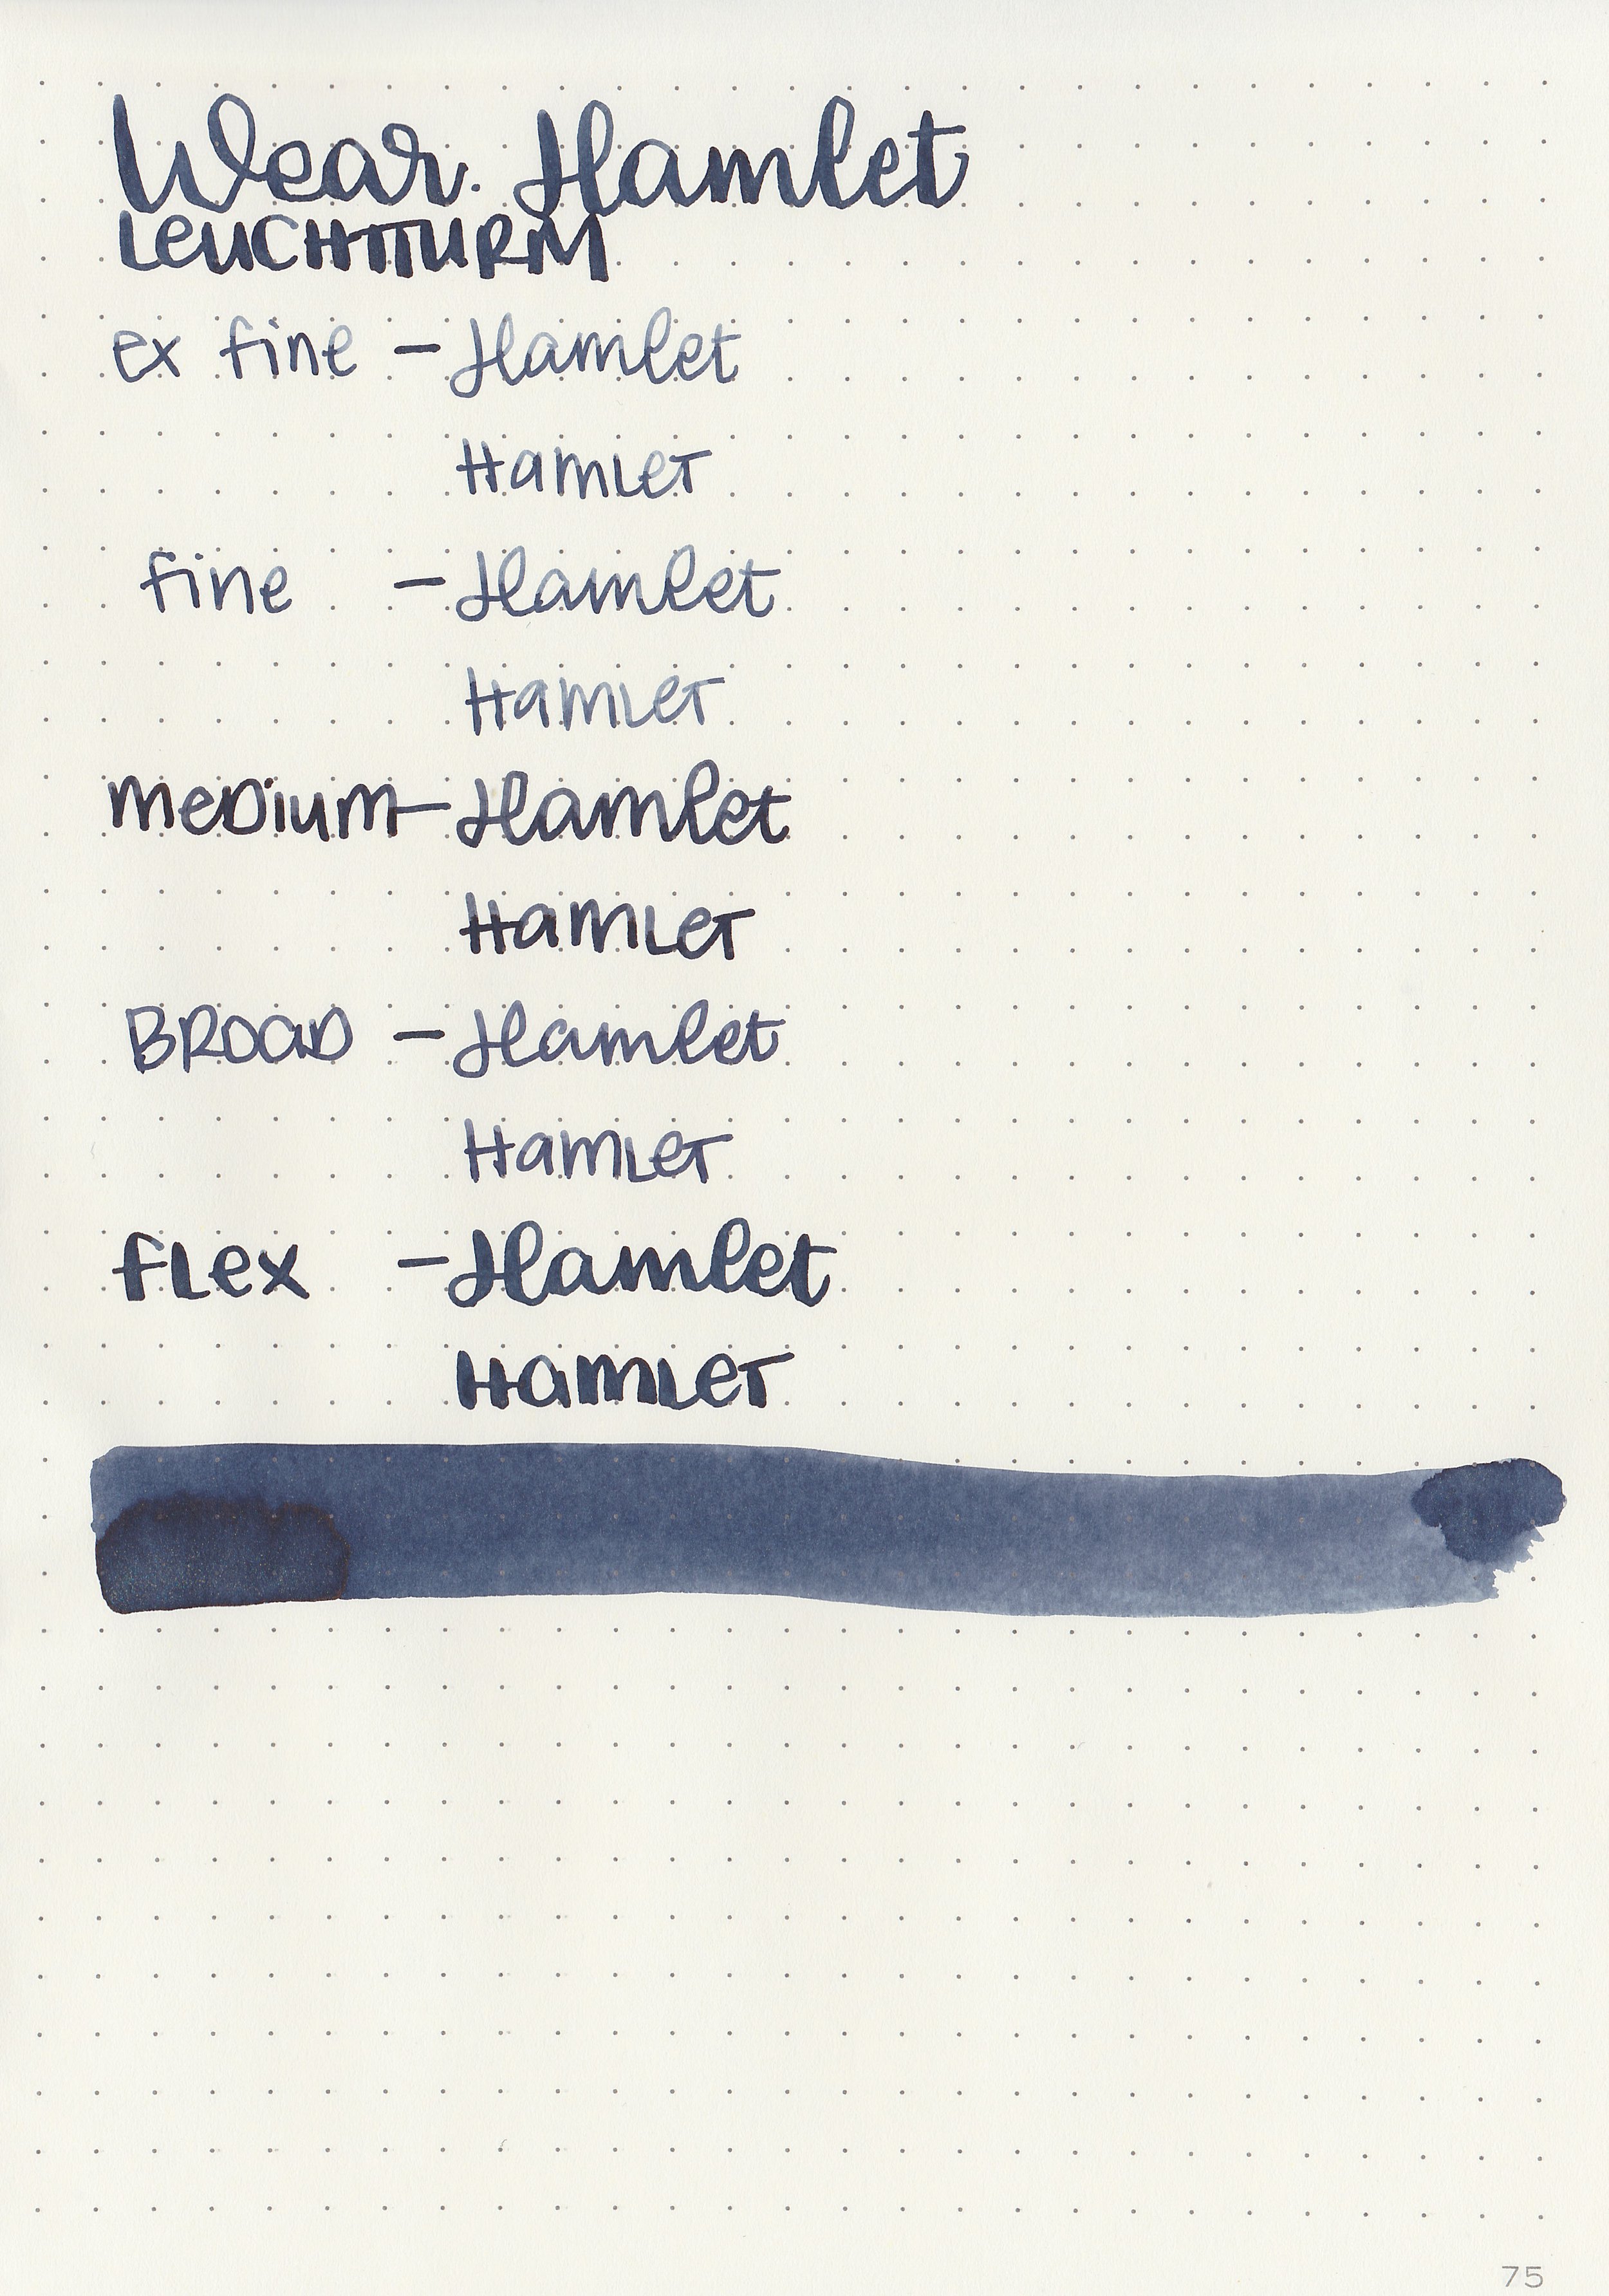 Wear. Hamlet
LEUCHTTURM
ex fine - Hamlet
Hamlet
fine - Hamlet
Hamlet
medium - Hamlet
Hamlet
BROAD - Hamlet
Hamlet
flex - Hamlet
Hamlet
75